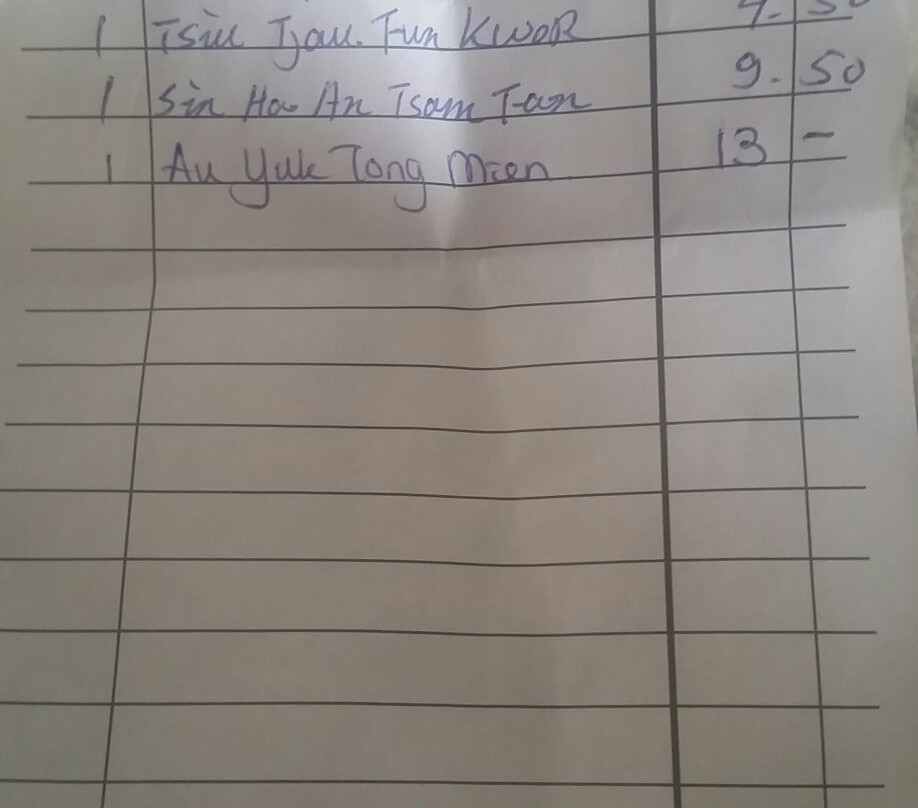 1 Tsiu Tjau. Fun Kwor
1 Sin Ha An Tsam Fan 9. 50
1 Au Yuk Tong Mien 13 -